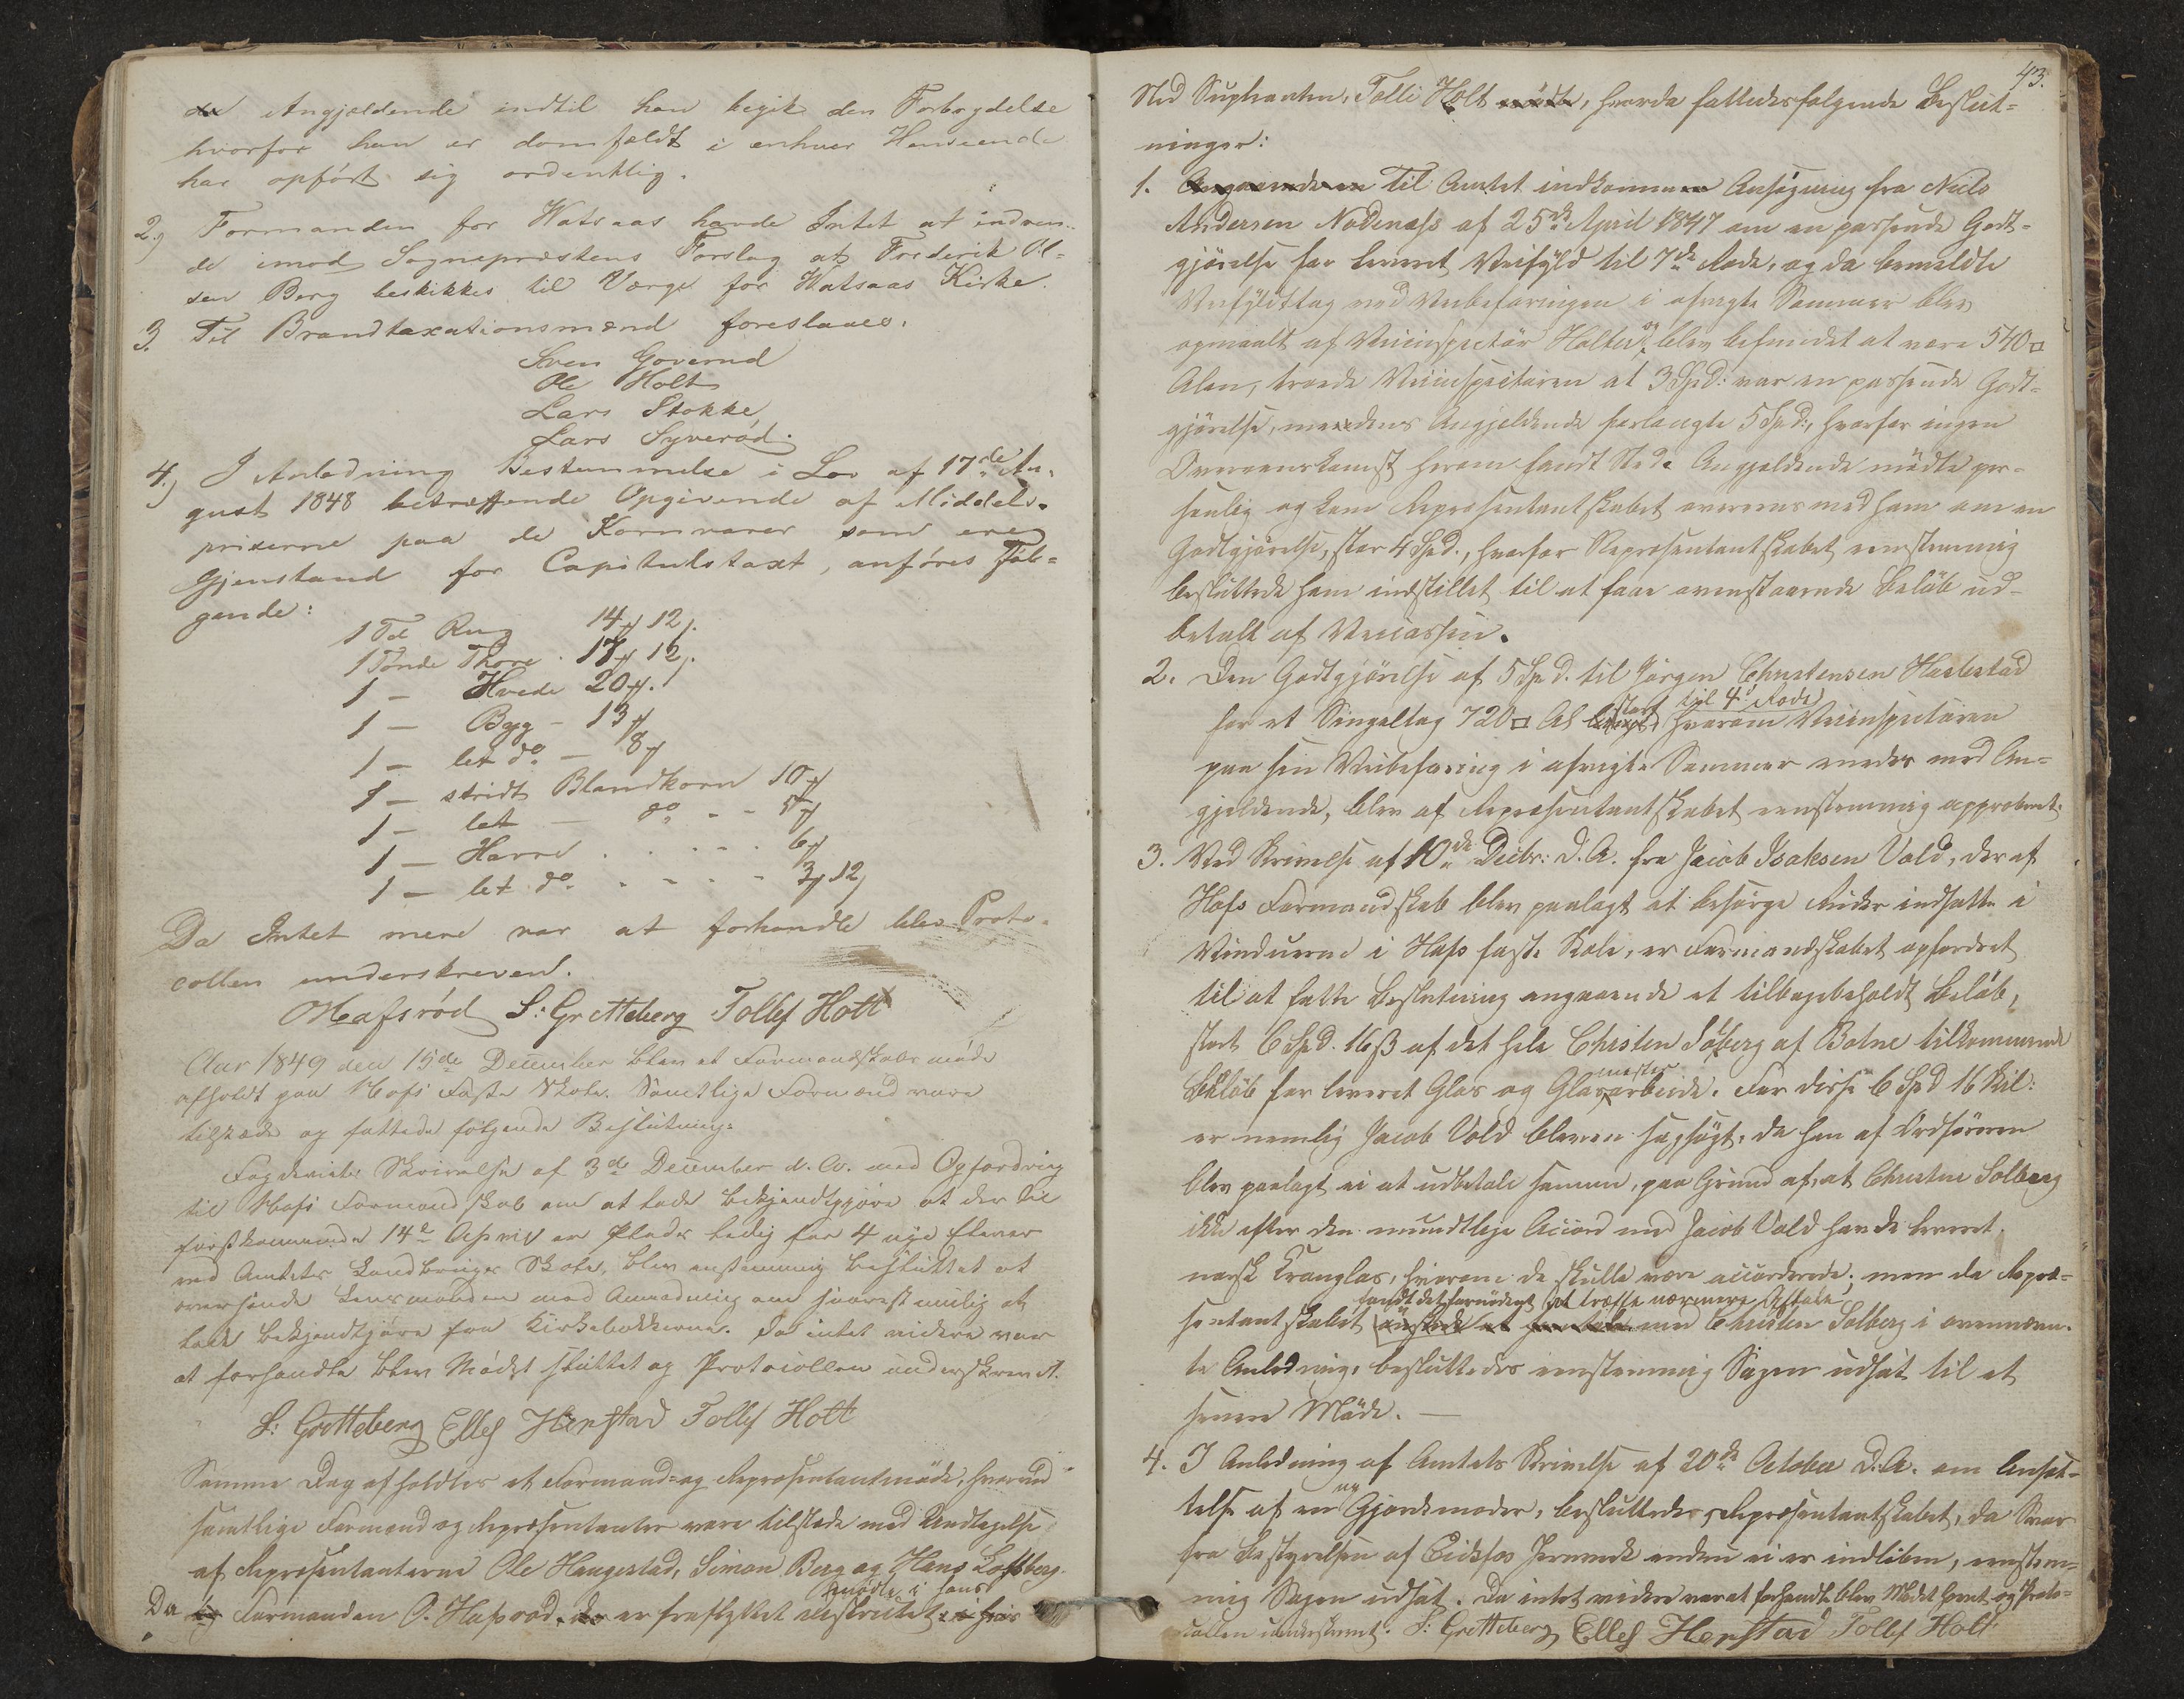 Angjældende indtil han begik den Forbrydelse
hvorfor han er domfældt i enhver Henseende
har opført sig ordentlig.
2.) Formanden for Watsaas havde Intet at indven-
de imod Sognepræstens Forslag at Frederik Ol-
sen Berg beskikkes til Værge for Watsaas Kirke.
3. Til Brandtaxationsmænd foreslaaes.
Sven Goverud
Ole Holt
Lars Stokke
Lars Syverød.
4.) I Anledning Bestemmelse i Lov af 17de Au-
gust 1848 betræffende Opgivende af Middels-
priserne paa de Kornvarer som ere
Gjenstand for Capitulstaxt, anføres Føl-
gende:
1 Td Rug 14 12
1 Tønde Thore 17 12
1 — Hvede 20
1 — Byg — 13
1 — let do — 8
1 — stridt Blandkorn 10
1 — let — do - - 5
1 — Havre . . . . 6
1 — let do - - - - 3 12
Da Intet mere var at forhandle blev Proto-
collen underskreven.
OHafsrød S: Gretteberg Tollef Holt
Aar 1849 den 15de December blev et Formandskabsmøde
afholdt paa Hofs Faste Skole. Samtlige Formænd vare
tilstæde og fattede følgende Beslutning:
Fogderiets Skrivelse af 3de December d. A. med Opfordring
til Hofs Formandskab om at lade bekjendtgjøre at der til
førstkommende 14de April er Plads ledig for 4 nye Elever
ved Amtets Landbrugs Skole, blev enstemmig besluttet at
oversende Lensmanden med Anmodning om snarest mulig at
lade bekjendtgjøre fra Kirkebakkerne. Da intet videre var
at forhandle blev Mødet sluttet og Protocollen underskrevet.
S: Gretteberg Ellef Henstad Tollef Holt
Samme Dag afholdtes et Formand- og Repræsentantmøde, hvorved
samtlige Formænd og Repræsentanter vare tilstæde med Undtagelse
af Repræsentanterne Ole Haugestad, Simon Berg og Hans Løfsberg.
mødte i hans
Da Formanden O. Hafsrød er fraflyttet Districtet
43.
Sted Suppleanten, Tolli Holt, hvorda fattedes følgende Beslut-
ninger:
1. Til Amtet indkommen Ansøgning fra Niels
Andersen Nødenæss af 25de April 1847 om en passende Godt-
gjørelse for leveret Veifyld til 7de Rode, og da bemeldte
Veifyldttag ved Veibefaringen i afvigte Sommer blev
opmaalt af Veiinspectør Holter og blev befundet at være 540 □
Alen, troede Veiinspectøren at 3 Spd: var en passende Godt-
gjørelse, medens Angjeldende forlangte 5 Spd:, hvorfor ingen
Overeenskomst herom fandt Sted. Angjeldende mødte per-
sonlig og kom Repræsentantskabet overeens med ham om en
Godtgjørelse, stor 4 Spd., hvorfor Repræsentantskabet eenstemmig
besluttede ham indstillet til at faae ovenstaaende Beløb ud-
betalt af Veicassen.
2. Den Godtgjørelse af 5 Spd. til Jørgen Christensen Haslestad
stort til 4de Rode
for et Singeltag 720 □ Al hvorom Veiinspectøren
paa sin Veibefaring i afvigte Sommer enedes med An-
gjeldende, blev af Repræsentantskabet eenstemmig approberet.
3. Ved Skrivelse af 10de Decbr: d. A. fra Jacob Isaksen Vold, der af
Hofs Formandskab blev paalagt at besørge Ruder indsatte i
Vinduerne i Hofs faste Skole, er Formandskabet opfordret
til at fatte Beslutning angaaende et tilbageholdt Beløb,
stort 6 Spd. 16 ß af det hele Christen Solberg af Botne tilkommende
mester
Beløb for leveret Glas og Glasarbeide. For disse 6 Spd 16 Skil:
er nemlig Jacob Vold bleven sagsøgt, da han af Ordføreren
blev paalagt ei at udbetale samme, paa Grund af, at Christen Solberg
ikke efter den mundtlige Accord med Jacob Vold havde leveret
norsk Kronglas, hvorom de skulle være accorderede; men da Repræ-
fandt det fornødent at træffe nærmere Aftale
sentantskabet med Christen Solberg i ovennævn-
te Anledning, besluttedes eenstemmig Sagen udsat til et
senere Møde. —
4. I Anledning af Amtets Skrivelse af 20de October d. A. om Ansæt-
ny
telse af en Gjordemoder, besluttede Repræsentantskabet, da Svar
fra Bestyrelsen af Eidsfos Jernverk endnu ei er indløben, eenstem-
mig Sagen udsat. Da intet videre var at forhandle blev Mødet hævet og Proto-
collen underskrevet. S: Gretteberg Ellef Henstad Tollef Holt